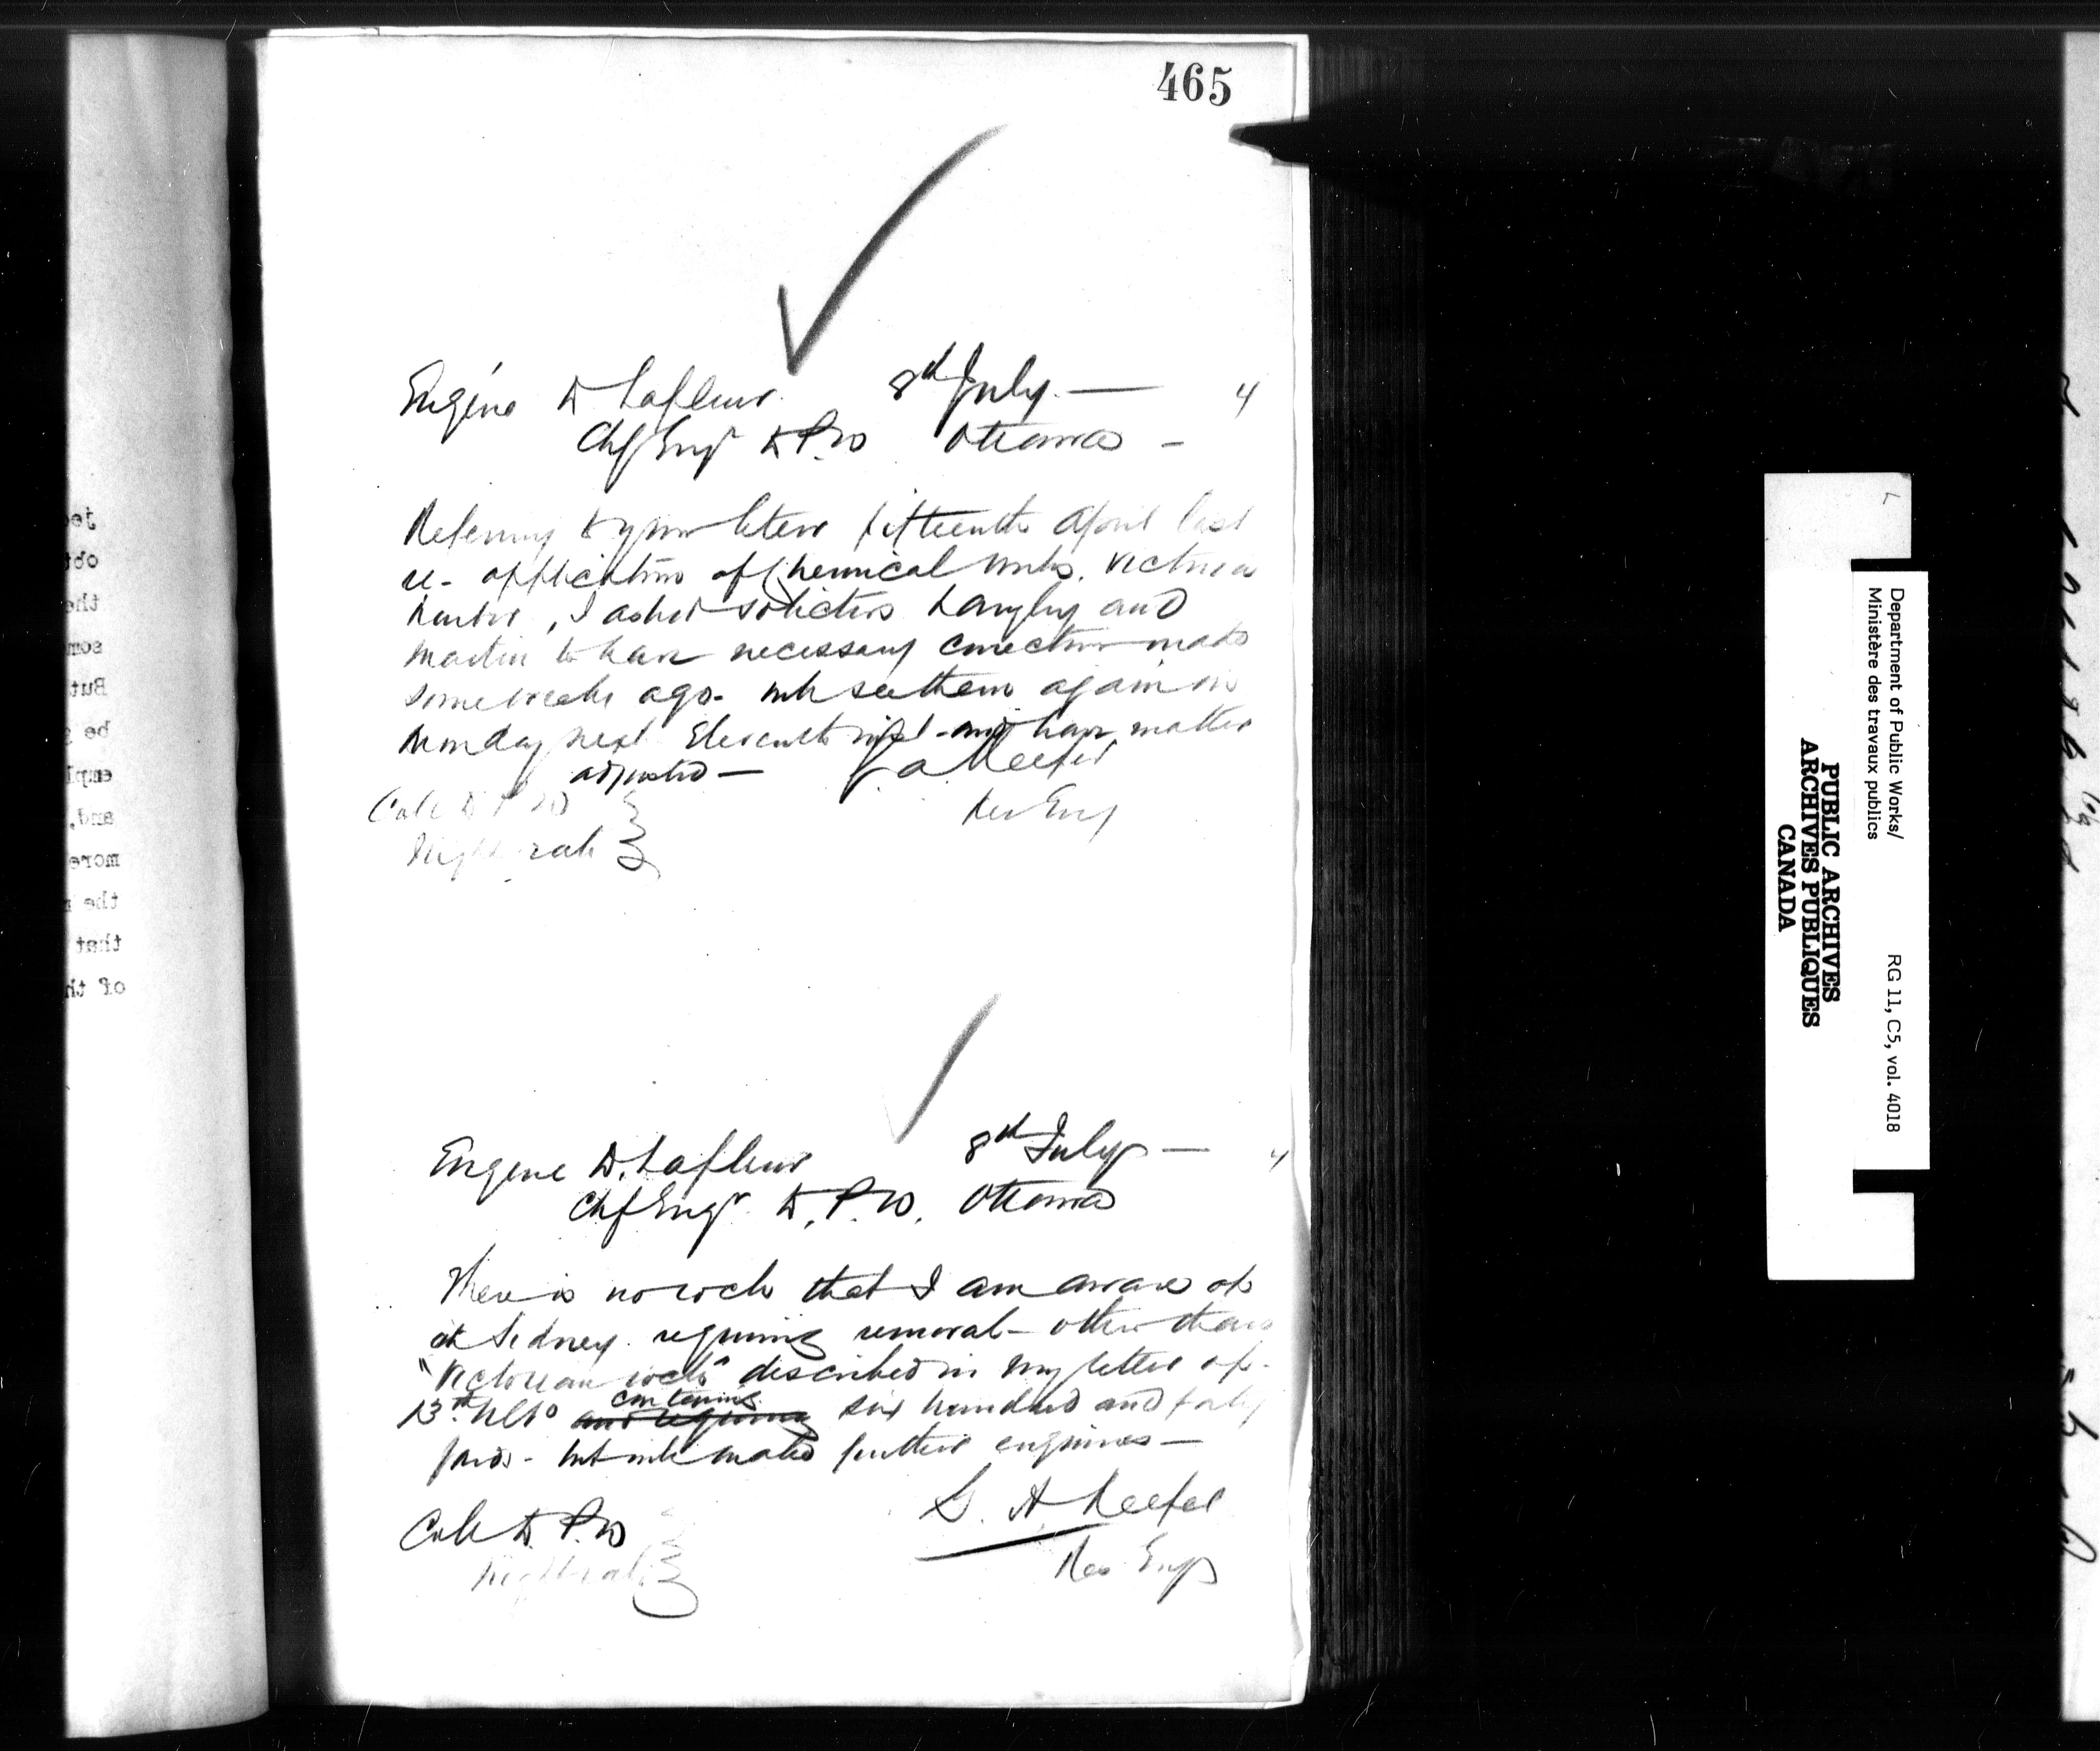 465
Eugène D Lafleur 8th July — 4
Chf Engr D P.W Ottawa —
Referring to your letter fifteenth April last
re - application of Chemical works, Victoria
harbor, I asked solicitors Langley and
Martin to have necessary correction made
some weeks ago - will see them again on
Monday next Eleventh inst - and have matter
adjusted — G. A Keefer
Coll D P W Res Eng
Night rate
Eugene D. Lafleur 8th July — 4
Chf Engr D. P. W. Ottawa
There is no rock that I am aware of
at Sidney requiring removal - other than
"Victorian rock" described in my letter of
13th ulto containing six hundred and forty
yards - but will make further enquiries —
Coll D. P. W G. A. Keefer
Night rate Res Engr
Department of Public Works/
Ministère des travaux publics
RG 11, C5, vol. 4018
PUBLIC ARCHIVES
ARCHIVES PUBLIQUES
CANADA